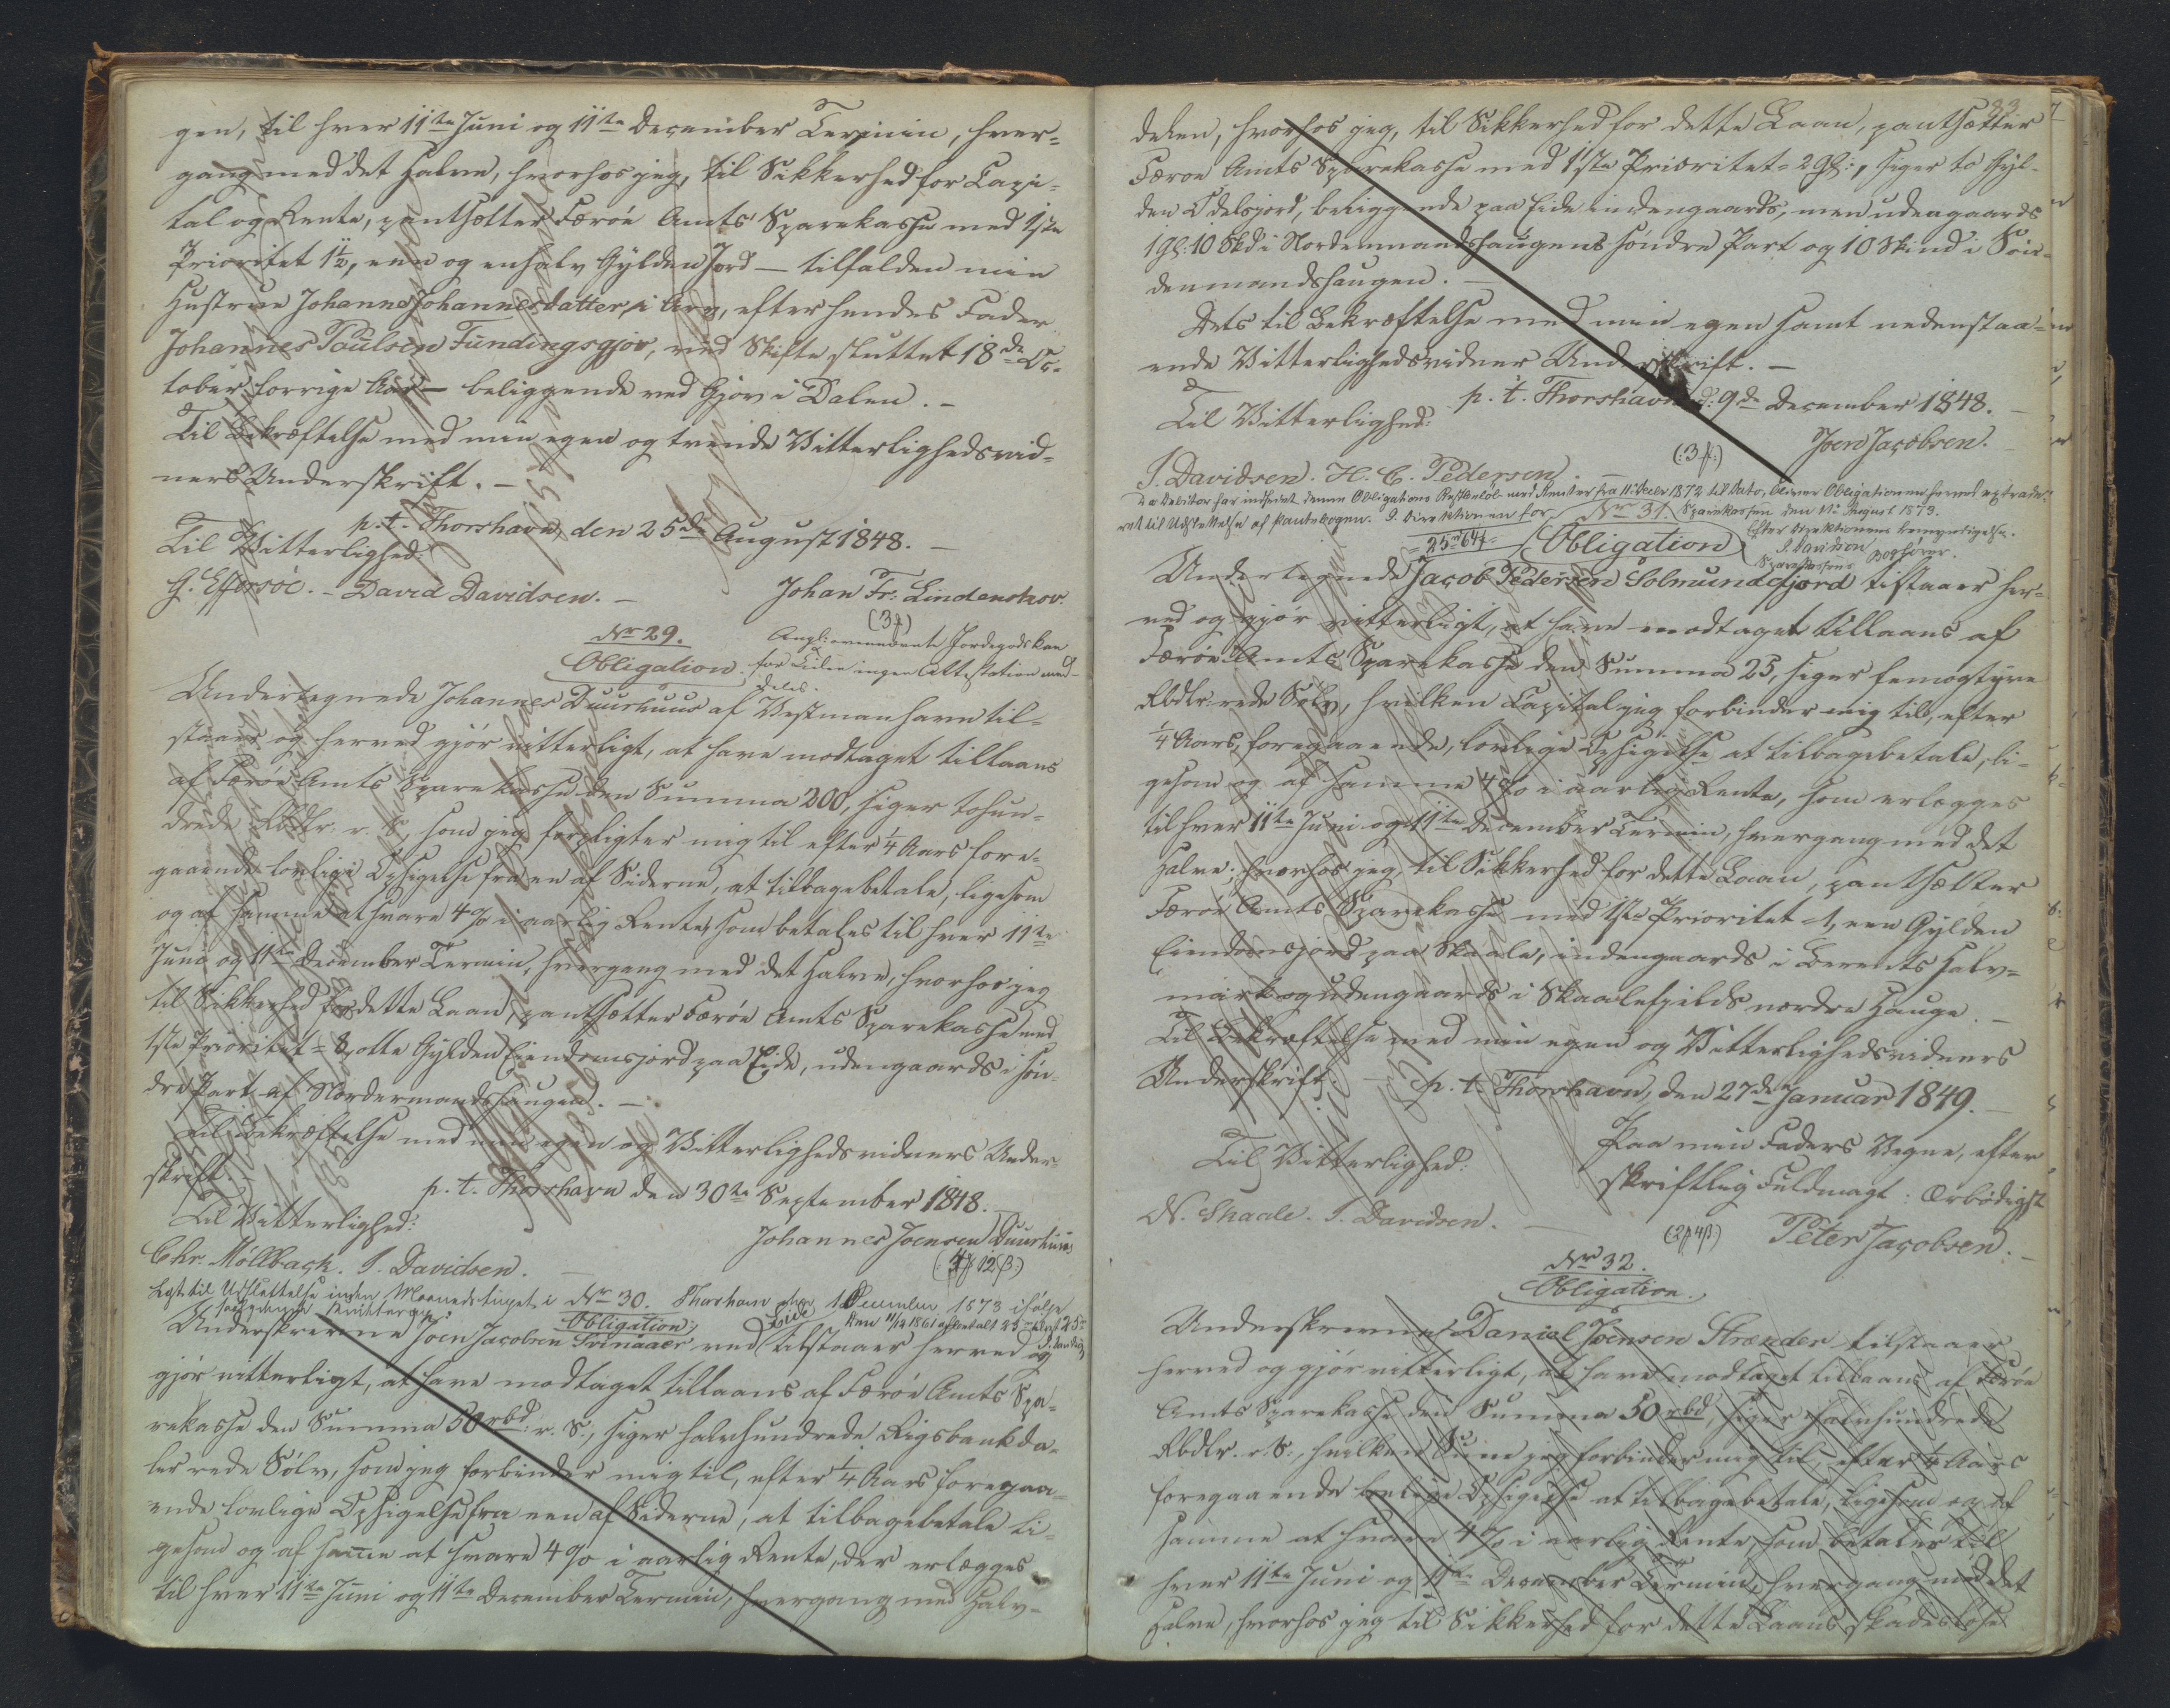 gen, til hver 11te Juni og 11te December Termin, hver-
gang med det Halve, hvorhos jeg, til Sikkerhed for Capi-
tal og Rente, pantsætter Færöe Amts Sparekasse med 1ste
Prioritet 1½, een og en halv Gylden Jord — tilfalden min
Hustrue Johanne Johannesdatter, i Arv, efter hendes Fader
Johannes Poulsen Fundingsgjov, ved Skifte sluttet 18de Oc-
tober forrige Aar — beliggende ved Gjov i Dalen. —
Til Bekræftelse med min egen og tvende Vitterlighedsvid-
ners Underskrift. —
p. t. Thorshavn, den 25de August 1848. —
Til Vitterlighed:
G. Effersöe. — David Davidsen. —
Johan Fr. Lindenskov.
(3f)
No 29.
Obligation.
Angl. ommeldente Jordegods kan
for Tiden ingen Attestation med-
deles.
Undertegnede Johannes Duurhuus af Vestmanhavn til-
staaer og herved gjör vitterligt, at have modtaget tillaans
af Færöe Amts Sparekasse den Summa 200, siger tohun-
drede Rbdlr. r. S., som jeg forpligter mig til efter ¼ Aars fore-
gaaende lovlige Opsigelse fra en af Siderne, at tilbagebetale, ligesom
og af samme at svare 4 % i aarlig Rente, som betales til hver 11te
Juni og 11te December Termin, hvergang med det Halve, hvorhos jeg
til Sikkerhed for dette Laan, pantsætter Færöe Amts Sparekasse med
1ste Prioritet = 8, otte Gylden Eiendomsjord paa Eide, udengaards i sön-
dre Part af Nordermandshaugen. —
Til Bekræftelse med min egen og Vitterlighedsvidners Under-
skrift.
p. t. Thorshavn den 30te September 1848.
Til Vitterlighed:
Johannes Joensen Duurhuus
Chr. Möllbach. J. Davidsen. —
(: 4f 12ß :)
Læst til Udslettelse inden Maanedstinget i Thorshavn 1 December 1873 ifölge
No 30.
Obligation.
den 11/12 1861 afbetalt 25
Underskrevne Joen Jacobsen Svinaaer ved Eide tilstaaer herved og
gjör vitterligt, at have modtaget tillaans af Færöe Amts Spa-
rekasse den Summa 50 rbd. r. S., siger halvhundrede Rigsbankda-
ler rede Sölv, som jeg forbinder mig til, efter ¼ Aars foregaa-
ende lovlige Opsigelse fra een af Siderne, at tilbagebetale li-
gesom og af samme at svare 4 % i aarlig Rente, der erlægges
til hver 11te Juni og 11te December Termin, hvergang med Halv-
83
delen, hvorhos jeg, til Sikkerhed for dette Laan, pantsætter
Færöe Amts Sparekasse med 1ste Prioritet = 2 gl:, siger to Gyl-
den Odelsjord, beliggende paa Eide indengaards, men udengaards
1 gl: 10 Skd i Nordenmandshaugens söndre Part og 10 Skind i Sön-
denmandshaugen. —
Dets til Bekræftelse med min egen samt nedenstaa-
ende Vitterlighedsvidners Underskrift. —
p. t. Thorshavn d: 9de December 1848. —
Til Vitterlighed:
Joen Jacobsen.
J. Davidsen. H. C. Pedersen.
(: 3f :)
Da Debitor har indfriet denne Obligations Restbelöb med Renter fra 11 Decbr 1872 til Dato, bliver Obligationen herved extrade-
ret til Udslettelse af Pantebogen. I Direktionen for Sparekassen den 11te August 1873.
Efter Direktionens Bemyndigelse.
J. Davidsen
Sparekassens Bogförer.
No 31.
Obligation
Undertegnede Jacob Pedersen Solmundefjord tilstaaer her-
ved og gjör vitterligt, at have modtaget tillaans af
Færöe Amts Sparekasse den Summa 25, siger femogtyve
Rbdlr: rede Sölv, hvilken Capital jeg forbinder mig til, efter
¼ Aars, foregaaende, lovlige Opsigelse at tilbagebetale, li-
gesom og af samme 4 % i aarlig Rente, som erlægges
til hver 11te Juni og 11te December Termin, hvergang med det
Halve; hvorhos jeg, til Sikkerhed for dette Laan, pantsætter
Færöe Amts Sparekasse med 1ste Prioritet 1, een Gylden
Eiendomsjord paa Skaale, indengaards i Berents Halv-
mark og udengaards i Skaalefjelds nordre Hauge. —
Til Bekræftelse med min egen og Vitterlighedsvidners
Underskrift. — p. t. Thorshavn, den 27de Januar 1849. —
Paa min Faders Vegne, efter
Til Vitterlighed:
skriftlig Fuldmagt: Ærbödigst
N. Skaale. J. Davidsen. —
(2f 4ß)
Peter Jacobsen. —
No 32.
Obligation.
Underskrevne Daniel Joensen Strænder tilstaaer
herved og gjör vitterligt, at have modtaget tillaans af Færöe
Amts Sparekasse den Summa 50 rbd, siger halvhundrede
Rbdlr. r. S., hvilken Sum jeg forbinder mig til, efter ¼ Aars
foregaaende lovlige Opsigelse at tilbagebetale, ligesom og af
samme at svare 4 % i aarlig Rente, som betales til
hver 11te Juni og 11te December Termin, hvergang med det
Halve, hvorhos jeg til Sikkerhed for dette Laans skadeslöse